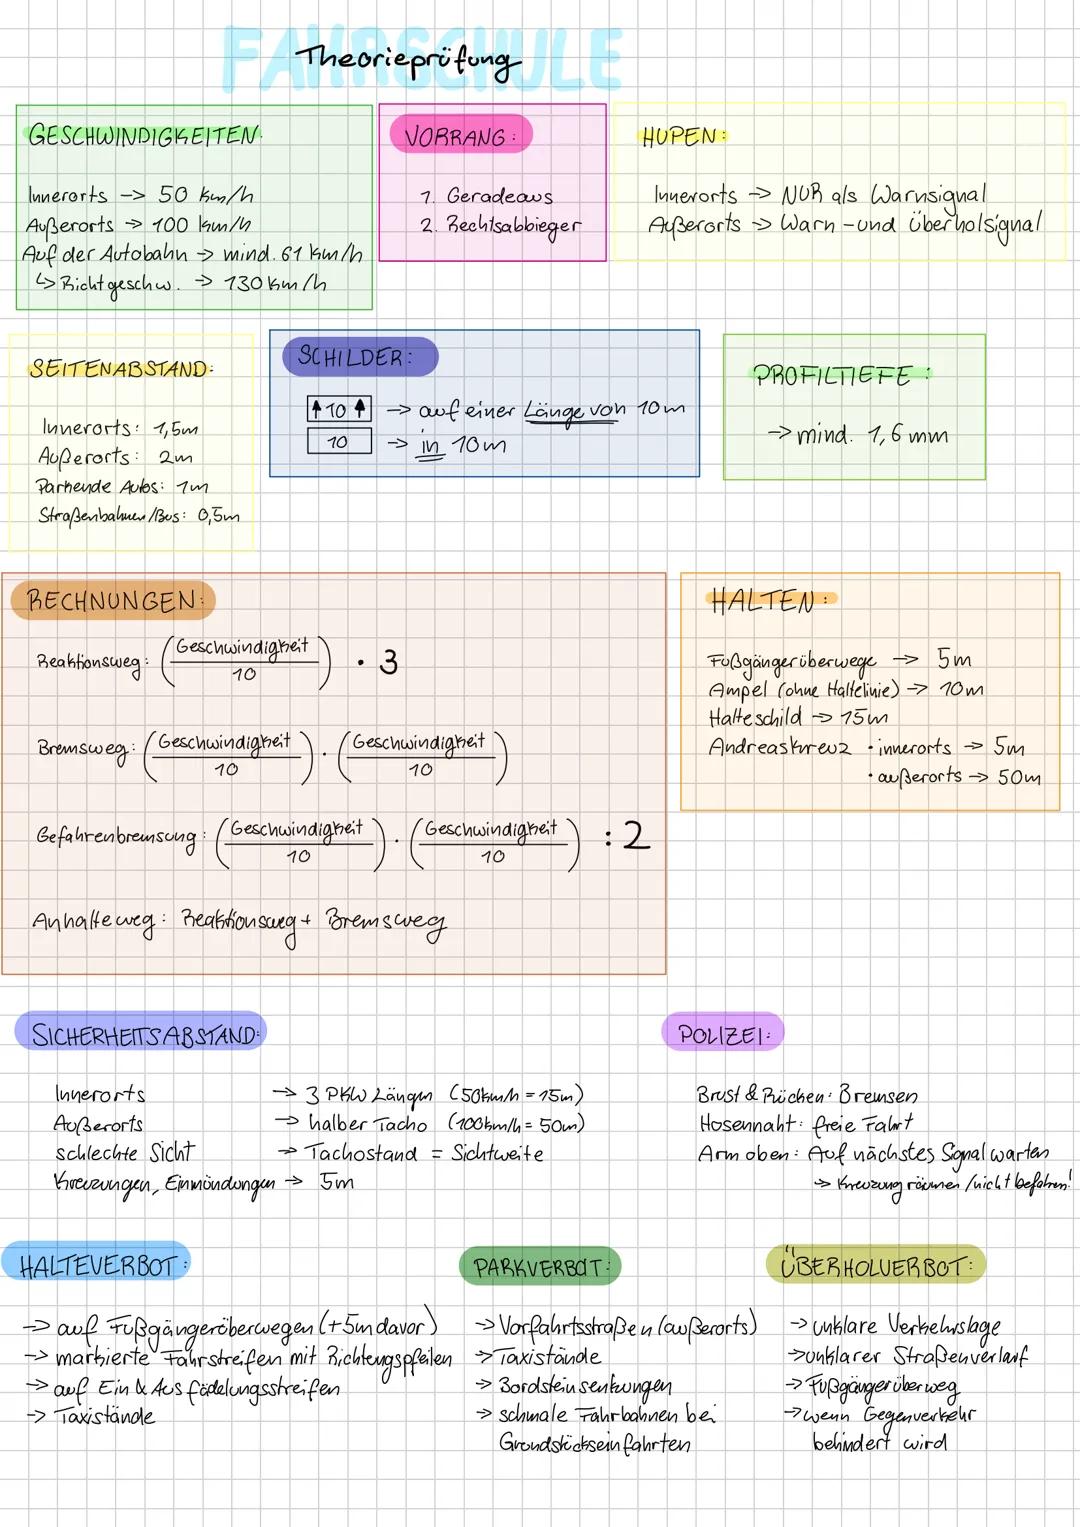 FAHRSCHULE
Theorieprüfung
GESCHWINDIGKEITEN:
Innerorts → 50 km/h
Außerorts → 100 km/h
Auf der Autobahn → mind. 61 km/h
↳ Richtgeschw. → 130 km/h
VORRANG:
1. Geradeaus
2. Rechtsabbieger
HUPEN:
Innerorts → NUR als Warnsignal
Außerorts → Warn-und überholsignal
SEITENABSTAND:
Innerorts: 1,5m
Außerorts: 2m
Parkende Autos: 1m
Straßenbahnen/Bus: 0,5m
SCHILDER:
↑ 10 ↑ → auf einer Länge von 10m
10 → in 10m
PROFILTIEFE:
→ mind. 1,6 mm
RECHNUNGEN:
Reaktionsweg: (Geschwindigkeit / 10) · 3
Bremsweg: (Geschwindigkeit / 10) · (Geschwindigkeit / 10)
Gefahrenbremsung: (Geschwindigkeit / 10) · (Geschwindigkeit / 10) : 2
Anhalteweg: Reaktionsweg + Bremsweg
HALTEN:
Fußgängerüberwege → 5m
Ampel (ohne Haltelinie) → 10m
Halteschild → 15m
Andreaskreuz · innerorts → 5m
· außerorts → 50m
SICHERHEITSABSTAND:
Innerorts → 3 PKW Längen (50km/h = 15m)
Außerorts → halber Tacho (100km/h = 50m)
schlechte Sicht → Tachostand = Sichtweite
Kreuzungen, Einmündungen → 5m
POLIZEI:
Brust & Rücken: Bremsen
Hosennaht: freie Fahrt
Arm oben: Auf nächstes Signal warten
→ Kreuzung räumen / nicht befahren!
HALTEVERBOT:
→ auf Fußgängerüberwegen (+5m davor)
→ markierte Fahrstreifen mit Richtungspfeilen
→ auf Ein & Ausfädelungsstreifen
→ Taxistände
PARKVERBOT:
→ Vorfahrtsstraßen (außerorts)
→ Taxistände
→ Bordsteinsenkungen
→ schmale Fahrbahnen bei
Grundstückseinfahrten
ÜBERHOLVERBOT:
→ unklare Verkehrslage
→ unklarer Straßenverlauf
→ Fußgängerüberweg
→ wenn Gegenverkehr
behindert wird